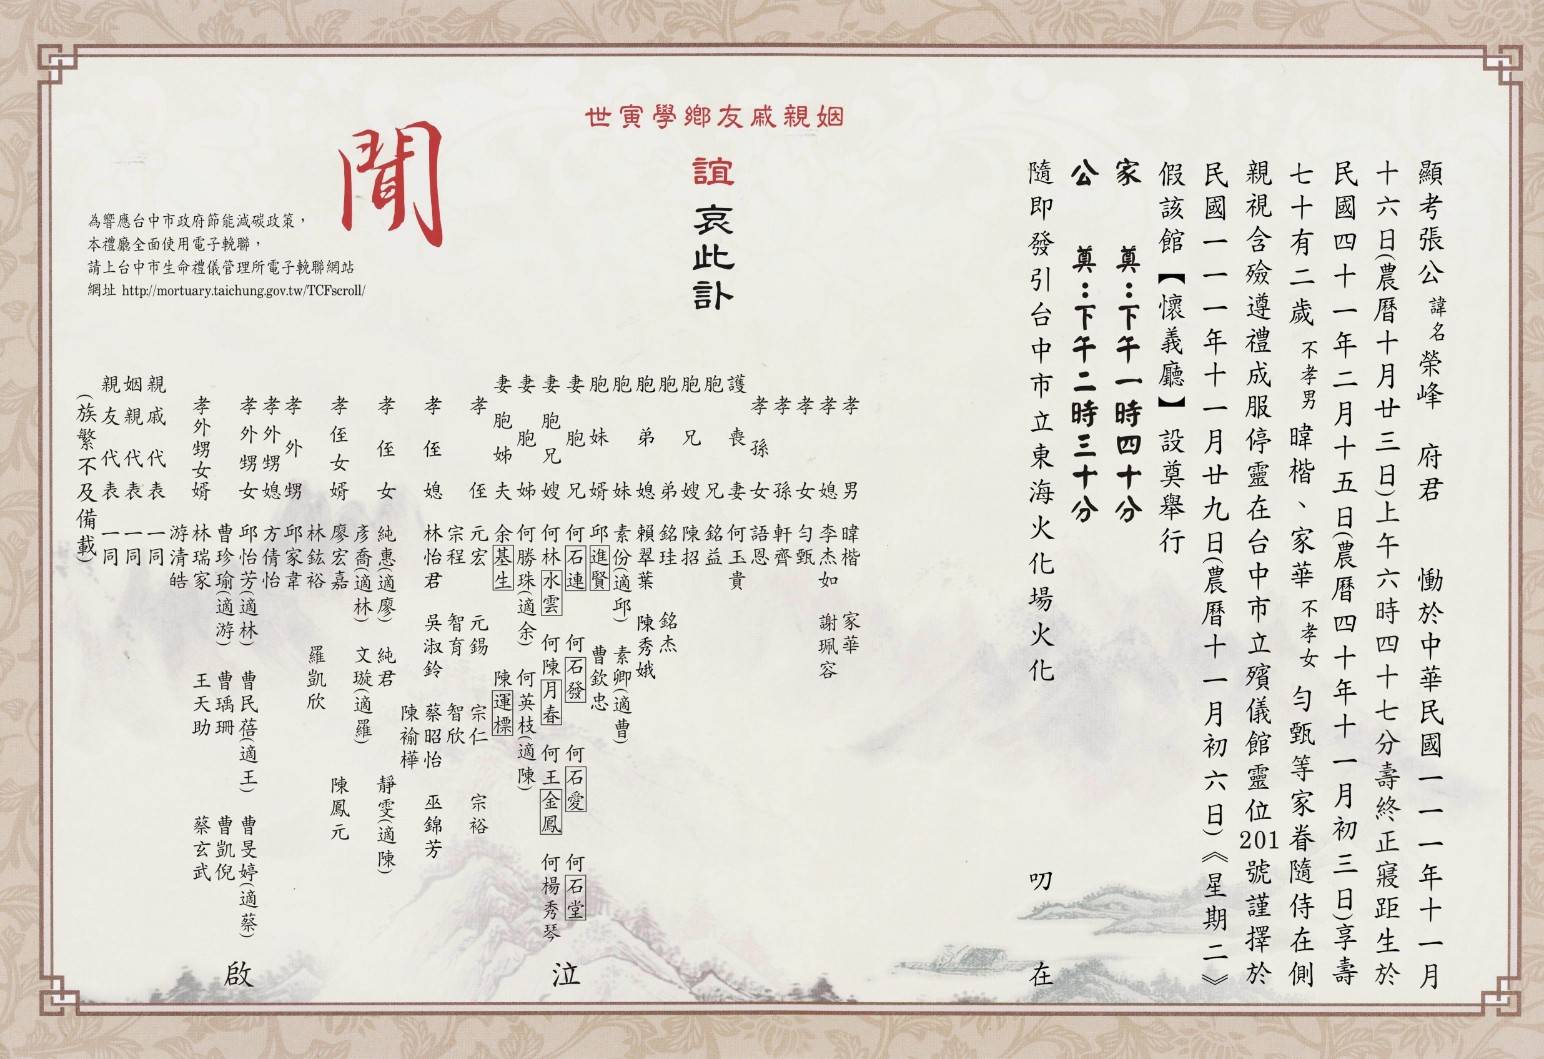 顯考張公諱名榮峰 府君 慟於中華民國一一一年十一月
十六日(農曆十月廿三日)上午六時四十七分壽終正寢距生於
民國四十一年二月十五日(農曆四十年十一月初三日)享壽
七十有二歲 不孝男 暐楷、家華 不孝女 勻甄等家眷隨侍在側
親視含殮遵禮成服停靈在台中市立殯儀館靈位201號謹擇於
民國一一一年十一月廿九日(農曆十一月初六日)《星期二》
假該館【懷義廳】設奠舉行
家 奠：下午一時四十分
公 奠：下午二時三十分
隨即發引台中市立東海火化場火化 叨 在
姻親戚友鄉學寅世
誼 哀此訃
聞
孝男 暐楷 家華
孝媳 李杰如 謝珮容
孝女 勻甄
孝孫 軒齊
孝孫女 語恩
護喪妻 何玉貴
胞兄 銘益
胞兄嫂 陳招
胞弟 銘珪 銘杰
胞弟媳 賴翠葉 陳秀娥
胞妹 素份(適邱) 素卿(適曹)
胞妹婿 邱進賢 曹欽忠
妻胞兄 何石連 何石發 何石愛 何石堂
妻胞兄嫂 何林水雲 何陳月春 何王金鳳 何楊秀琴
妻胞姊 何勝珠(適余) 何英枝(適陳)
妻胞姊夫 余基生 陳運標
泣
孝侄 元宏 元錫 宗仁 宗裕
宗程 智育 智欣
孝侄媳 林怡君 吳淑鈴 蔡昭怡 巫錦芳
陳褕樺
孝侄女 純惠(適廖) 純君 靜雯(適陳)
彥喬(適林) 文璇(適羅)
孝侄女婿 廖宏嘉 陳鳳元
林鉉裕 羅凱欣
孝外甥 邱家韋
孝外甥媳 方倩怡
孝外甥女 邱怡芳(適林) 曹民蓓(適王) 曹旻婷(適蔡)
曹珍瑜(適游) 曹瑀珊 曹凱倪
孝外甥女婿 林瑞家 王天助 蔡玄武
游清皓
親戚代表一同
姻親代表一同
親友代表一同
(族繁不及備載)
啟
為響應台中市政府節能減碳政策，
本禮廳全面使用電子輓聯，
請上台中市生命禮儀管理所電子輓聯網站
網址 http://mortuary.taichung.gov.tw/TCFscroll/